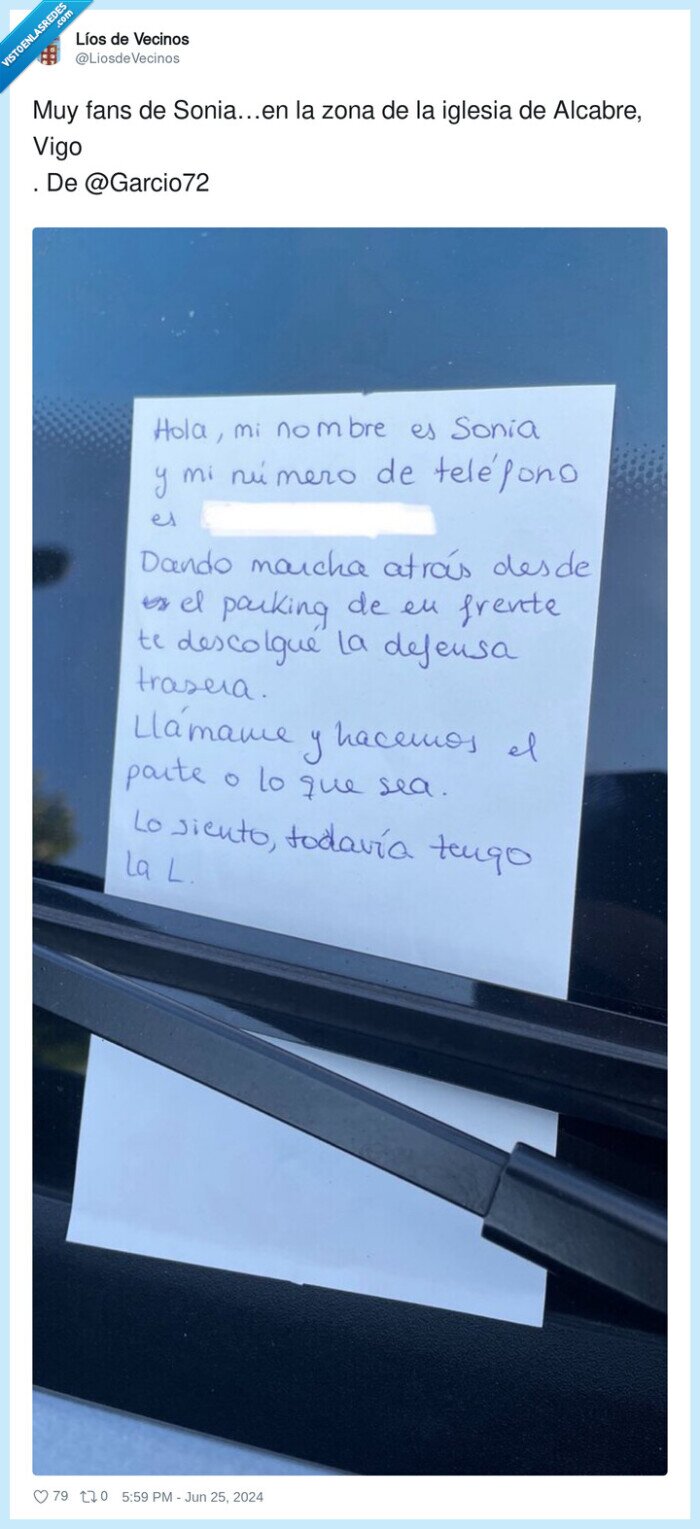 VISTOENLASREDES
.com
Líos de Vecinos
@LiosdeVecinos
Muy fans de Sonia…en la zona de la iglesia de Alcabre,
Vigo
. De @Garcio72
Hola, mi nombre es Sonia
y mi número de teléfono
es
Dando marcha atrás desde
el parking de en frente
te descolgué la defensa
trasera.
Llámame y hacemos el
parte o lo que sea.
Lo siento, todavía tengo
la L.
79 0 5:59 PM - Jun 25, 2024